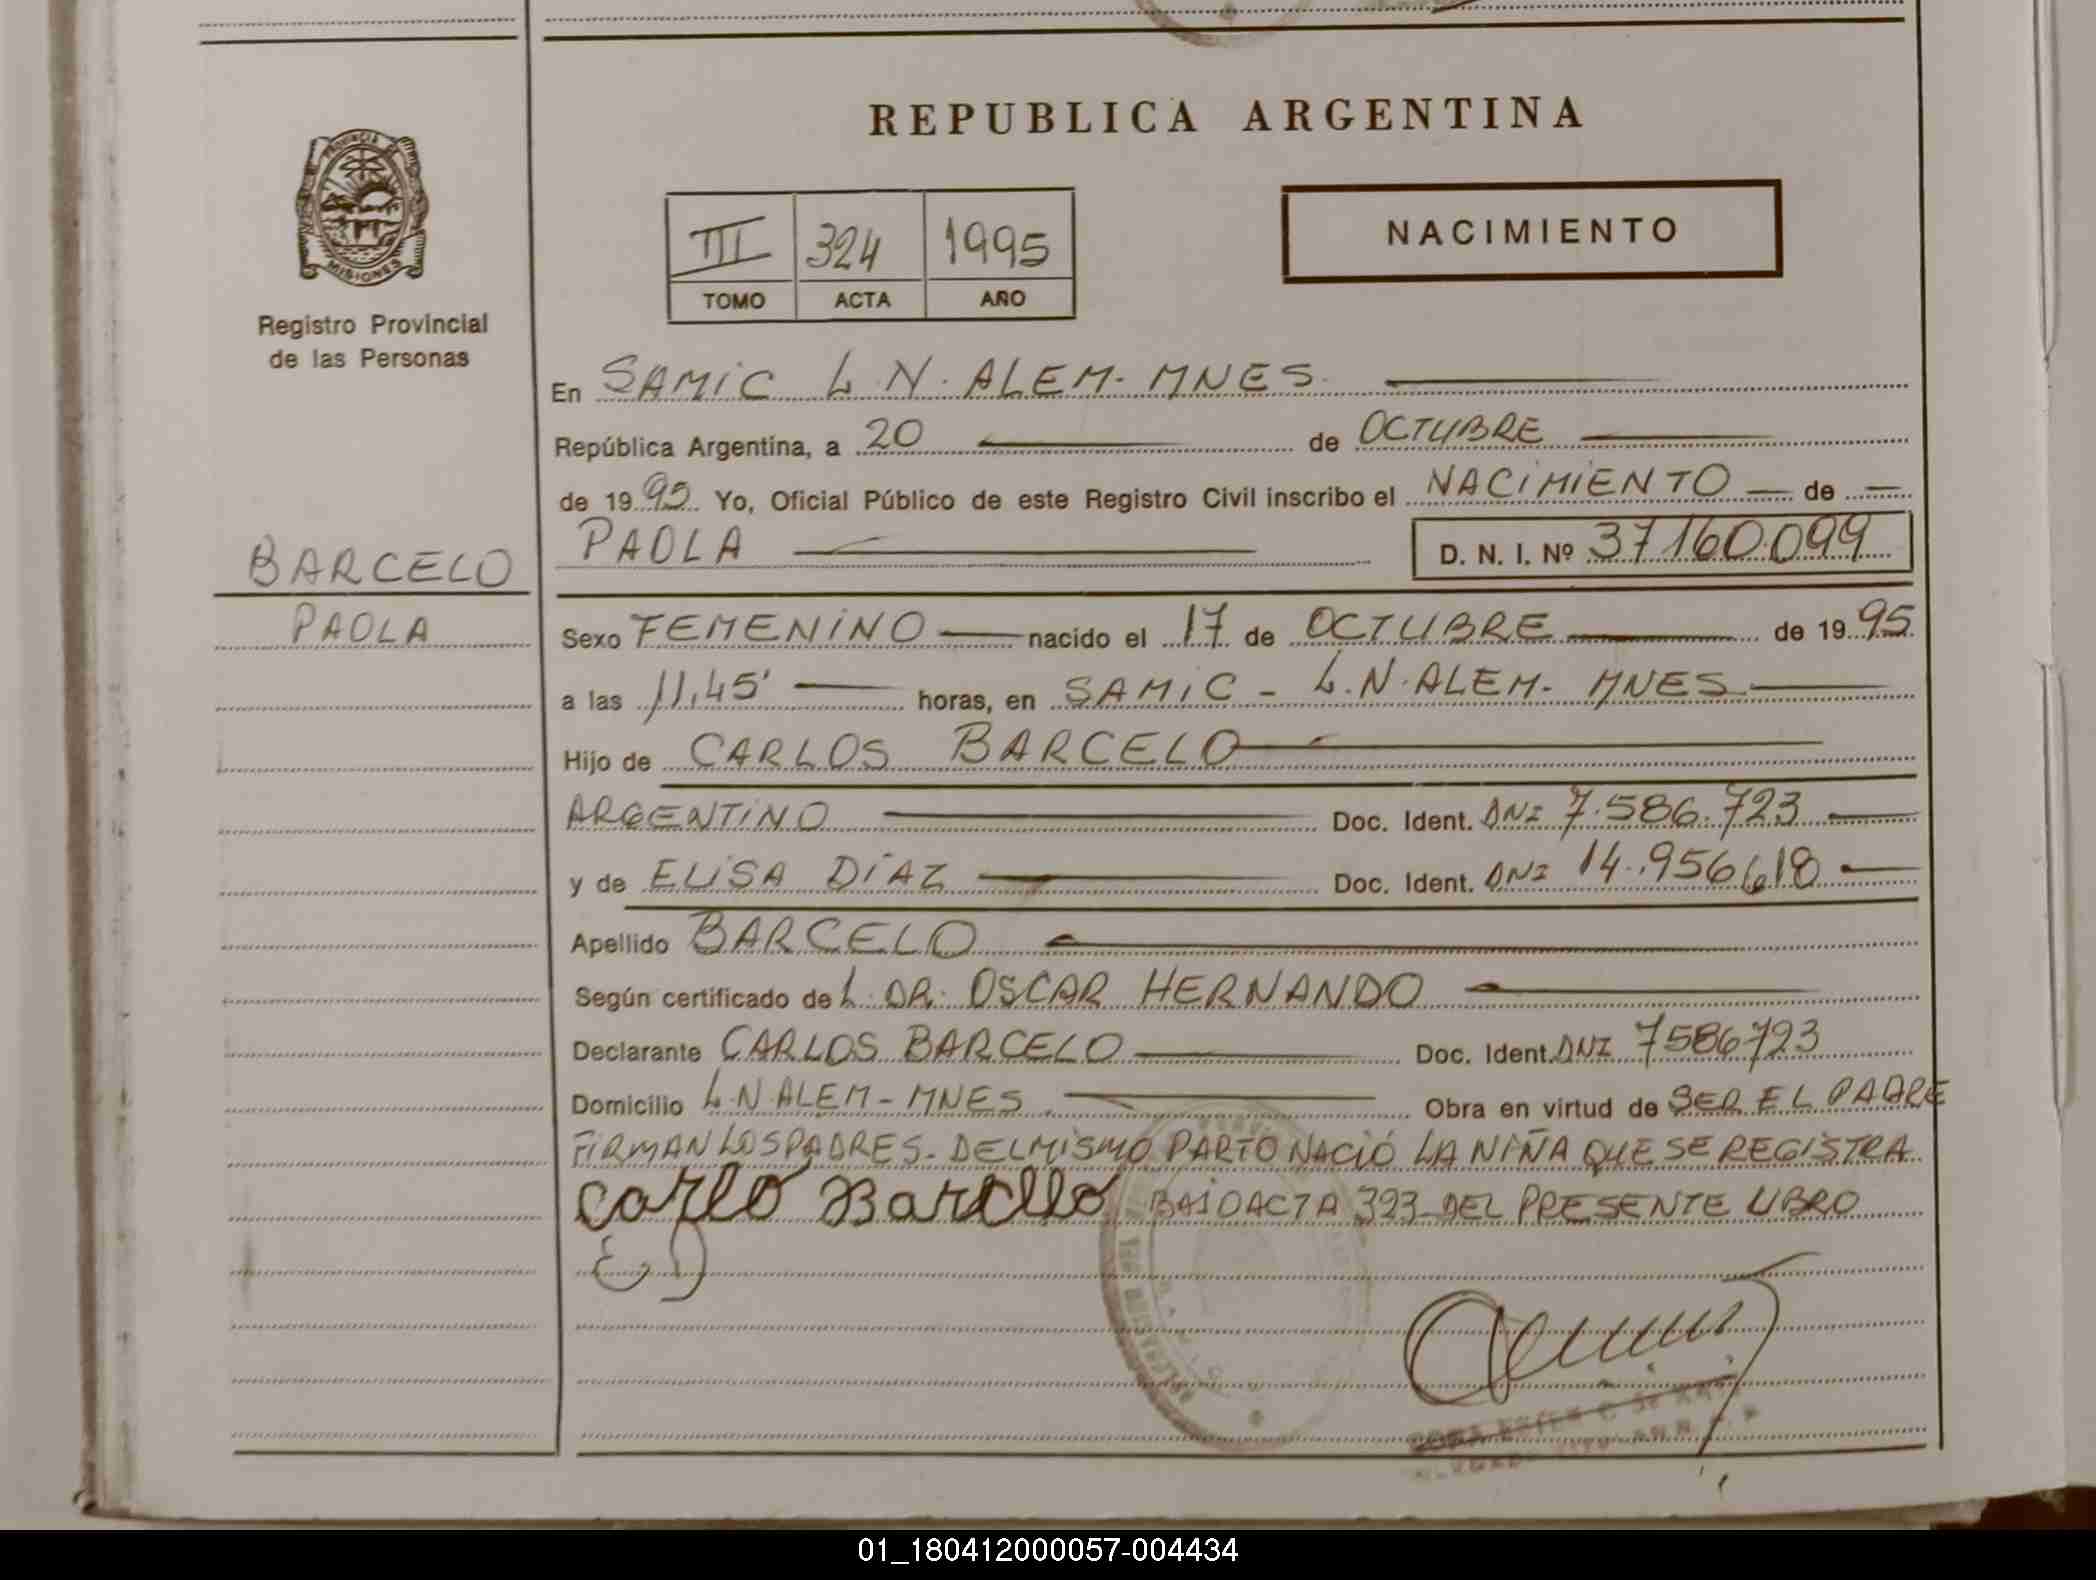 REPUBLICA ARGENTINA
PROVINCIA DE
MISIONES
Registro Provincial
de las Personas
III 324 1995
TOMO ACTA AÑO
NACIMIENTO
En SAMIC L.N. ALEM - MNES.
República Argentina, a 20 de OCTUBRE
de 1995 Yo, Oficial Público de este Registro Civil inscribo el NACIMIENTO de
BARCELO
PAOLA
PAOLA D. N. I. Nº 37160.099
Sexo FEMENINO nacido el 17 de OCTUBRE de 1995
a las 11,45' horas, en SAMIC - L.N. ALEM - MNES
Hijo de CARLOS BARCELO
ARGENTINO Doc. Ident. DNI 7.586.723
y de ELISA DÍAZ Doc. Ident. DNI 14.956618
Apellido BARCELO
Según certificado de L. DR. OSCAR HERNANDO
Declarante CARLOS BARCELO Doc. Ident. DNI 7586723
Domicilio L.N ALEM - MNES Obra en virtud de SER EL PADRE
FIRMAN LOS PADRES - DEL MISMO PARTO NACIÓ LA NIÑA QUE SE REGISTRA
Carlo Barcllo BAJO ACTA 323 DEL PRESENTE LIBRO
E D
01_180412000057-004434